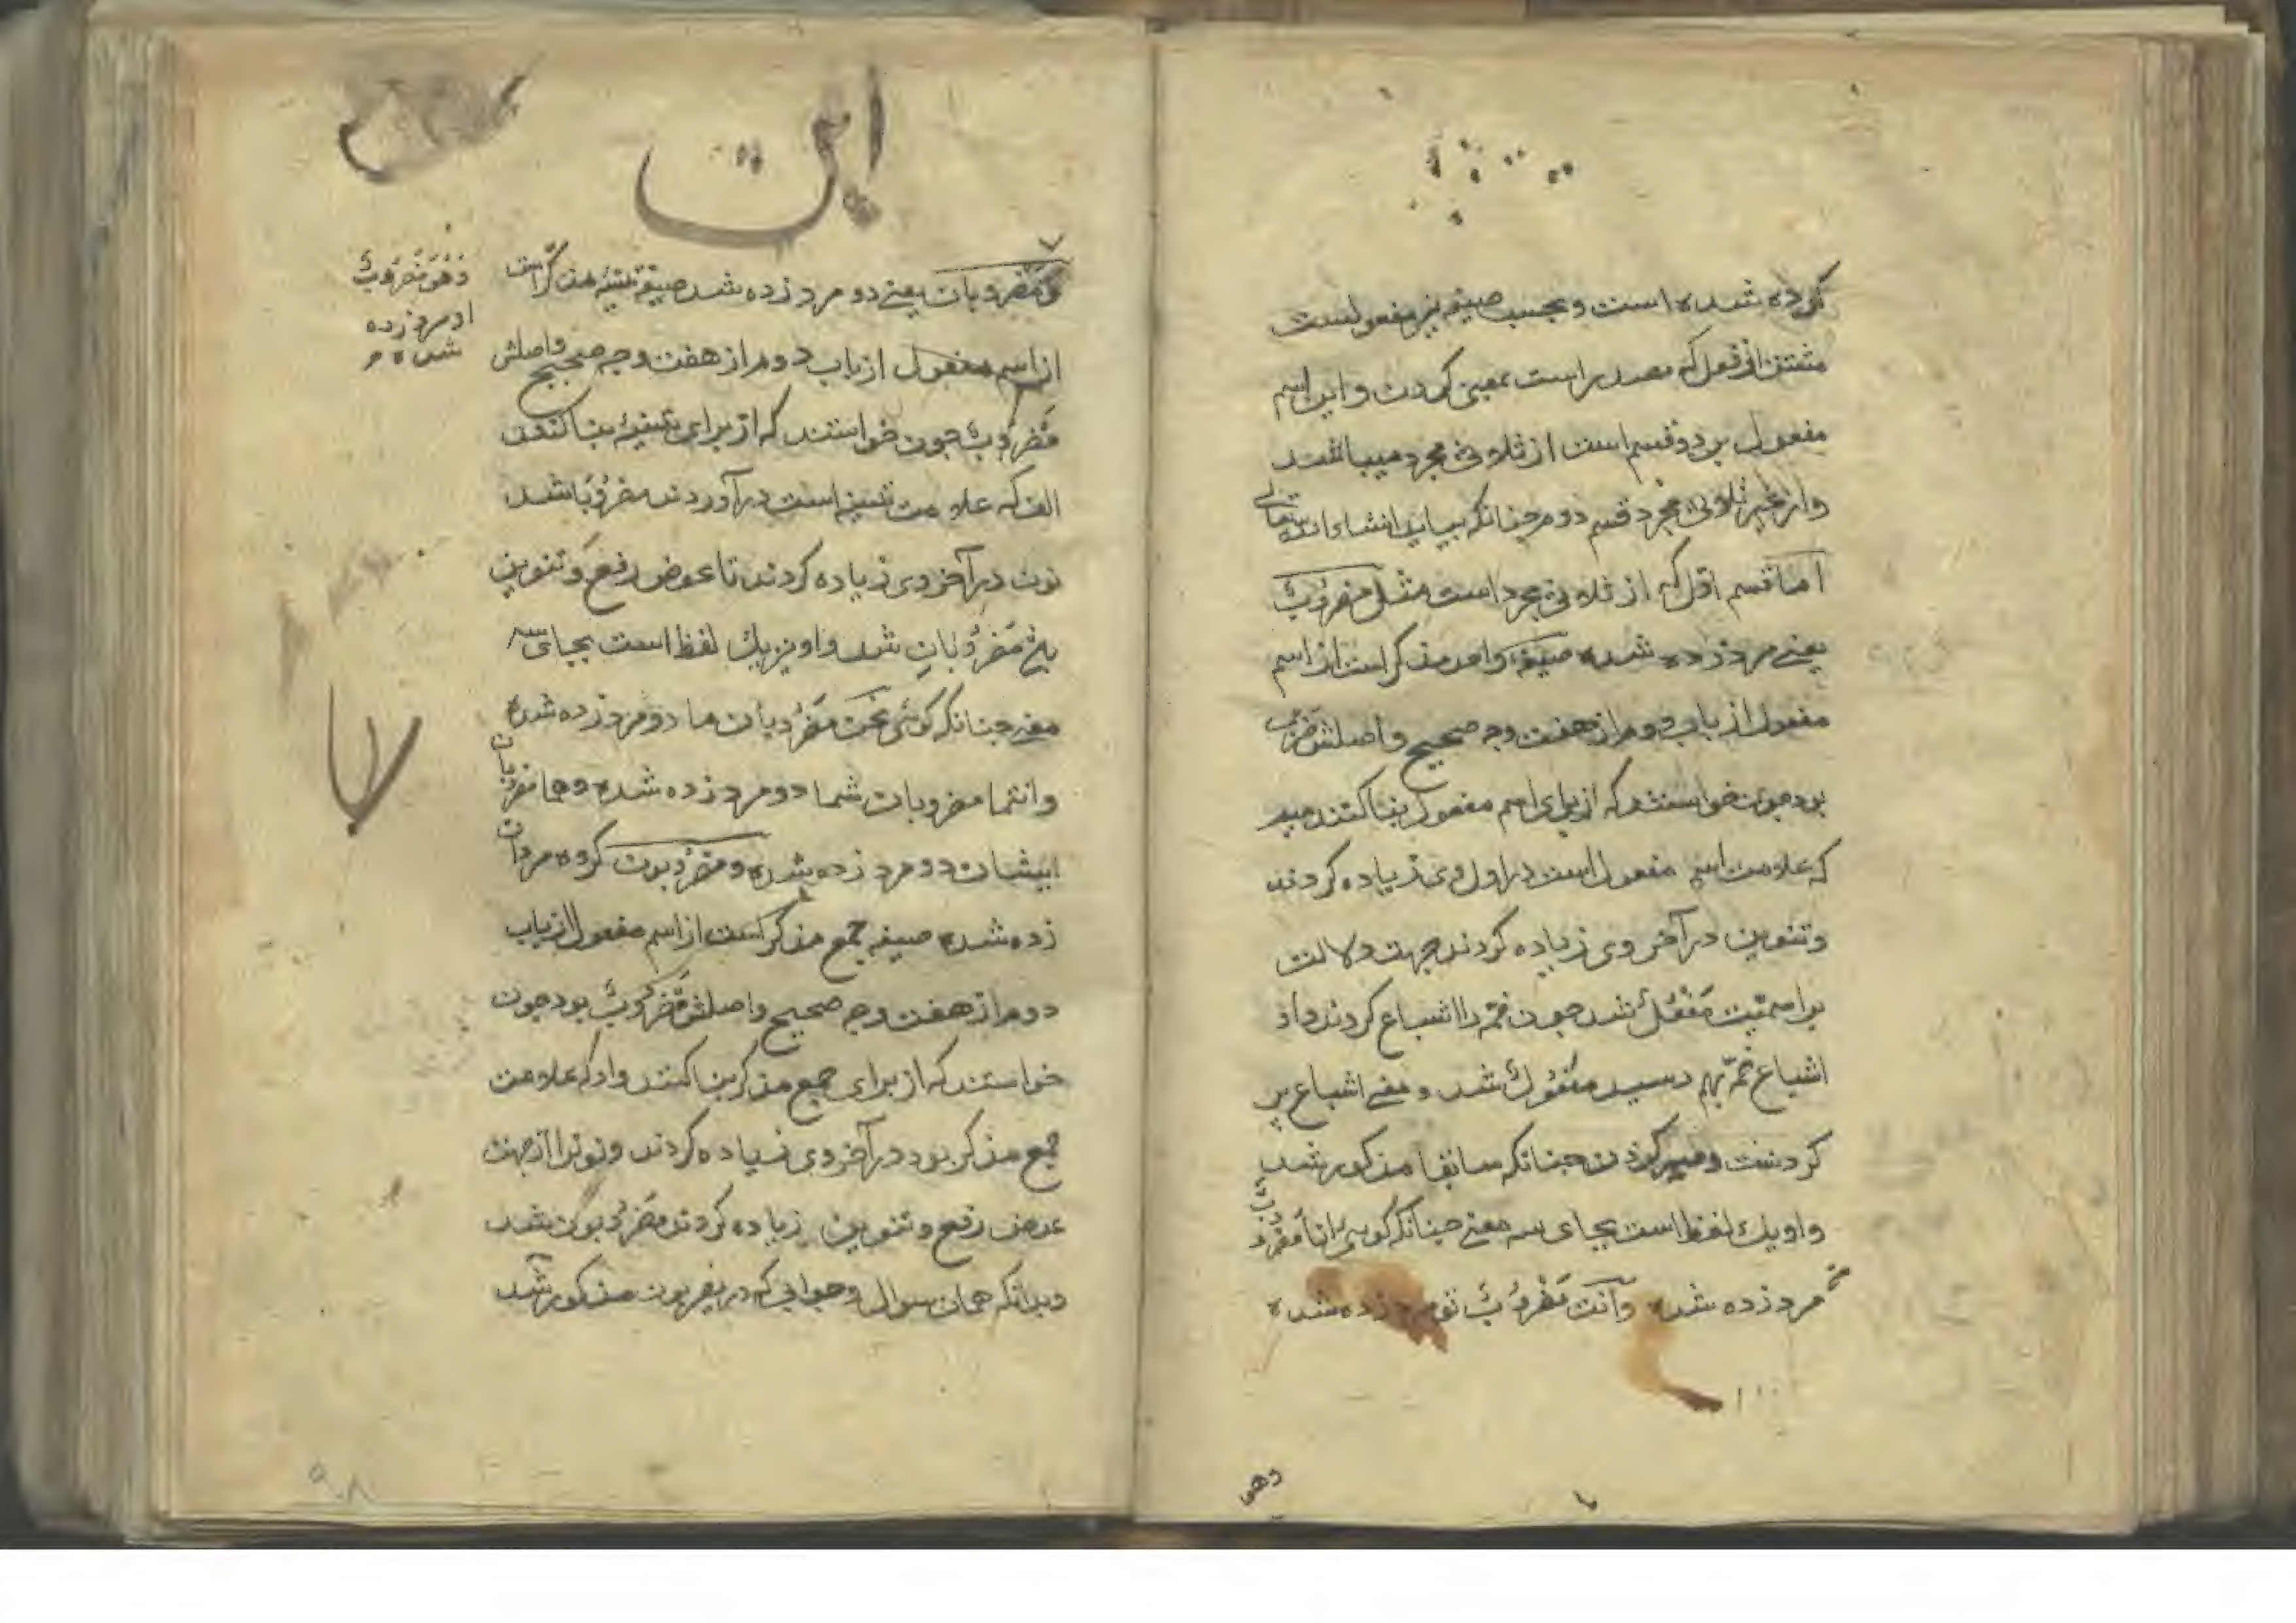 کرده شده است و بحسب صیغه نیز مفعولست
مشتق از فعل که مصدر است بمعنی کردن و این اسم
مفعول بر دو قسم است از ثلاثی مجرد میباشد
و از غیر ثلاثی مجرد قسم دوم چنانکه بیاید انشاء الله تعالی
اما قسم اول که از ثلاثی مجرد است مثل مَضْرُوبٌ
یعنی مرد زده شده صیغه واحد مذکر است از اسم
مفعول از باب دوم از هفت وجه صحیح و اصلش
بود چون خواستند که از برای اسم مفعول بنا کنند میم
که علامت اسم مفعول است در اول وی زیاده کردند
و تنوین در آخر وی زیاده کردند جهت دلالت
بر اسمیّت مَفْعُلٌ شد چون ضمّه را اشباع کردند واو
اشباع ضمّه بهم رسید مَفْعُولٌ شد و معنی اشباع پر
کردنست و سیر کردن چنانکه سابقا مذکور شد
و او یك لفظ است بجای سه معنی چنانکه کوئی انا مَضْرُوبٌ
مرد زده شده وَاَنْتَ مَضْرُوبٌ تو مرد زده شده
وهو
این
وَمَضْرُوبان یعنی دو مرد زده شد صیغه تثنیه مذکر است
از اسم مفعول از باب دوم از هفت وجه صحیح و اصلش
مَضْرُوبٌ چون خواستند که از برای تثنیه بنا کنند
الف که علامت تثنیه است در آوردند مضرُوبَا شد
نون در آخر وی زیاده کردند تا عوض رفع و تنوین
مَضْرُوبَانِ شد و او نیز یك لفظ است بجای سه
معنی چنانکه کوئی نَحْنُ مَضْرُوبان ما دو مرد زده شده
و انتما مضروبان شما دو مرد زده شده و هما مضروبان
ایشان دو مرد زده شده و مَضْرُوبون کروه مردان
زده شده صیغه جمع مذکر است از اسم مفعول از باب
دوم از هفت وجه صحیح و اصلش مَضْرُوبٌ بود چون
خواستند که از برای جمع مذکر بنا کنند واو که علامت
جمع مذکر بود در آخر وی زیاده کردند و نونرا از جهت
عوض رفع و تنوین زیاده کردند مَضْرُوبُونَ شد
و بدانکه همان سوال و جوابی که در یضربون مذکور شد
وَهُوَ مَضْرُوبٌ
او مرد زده
شده
۹۸